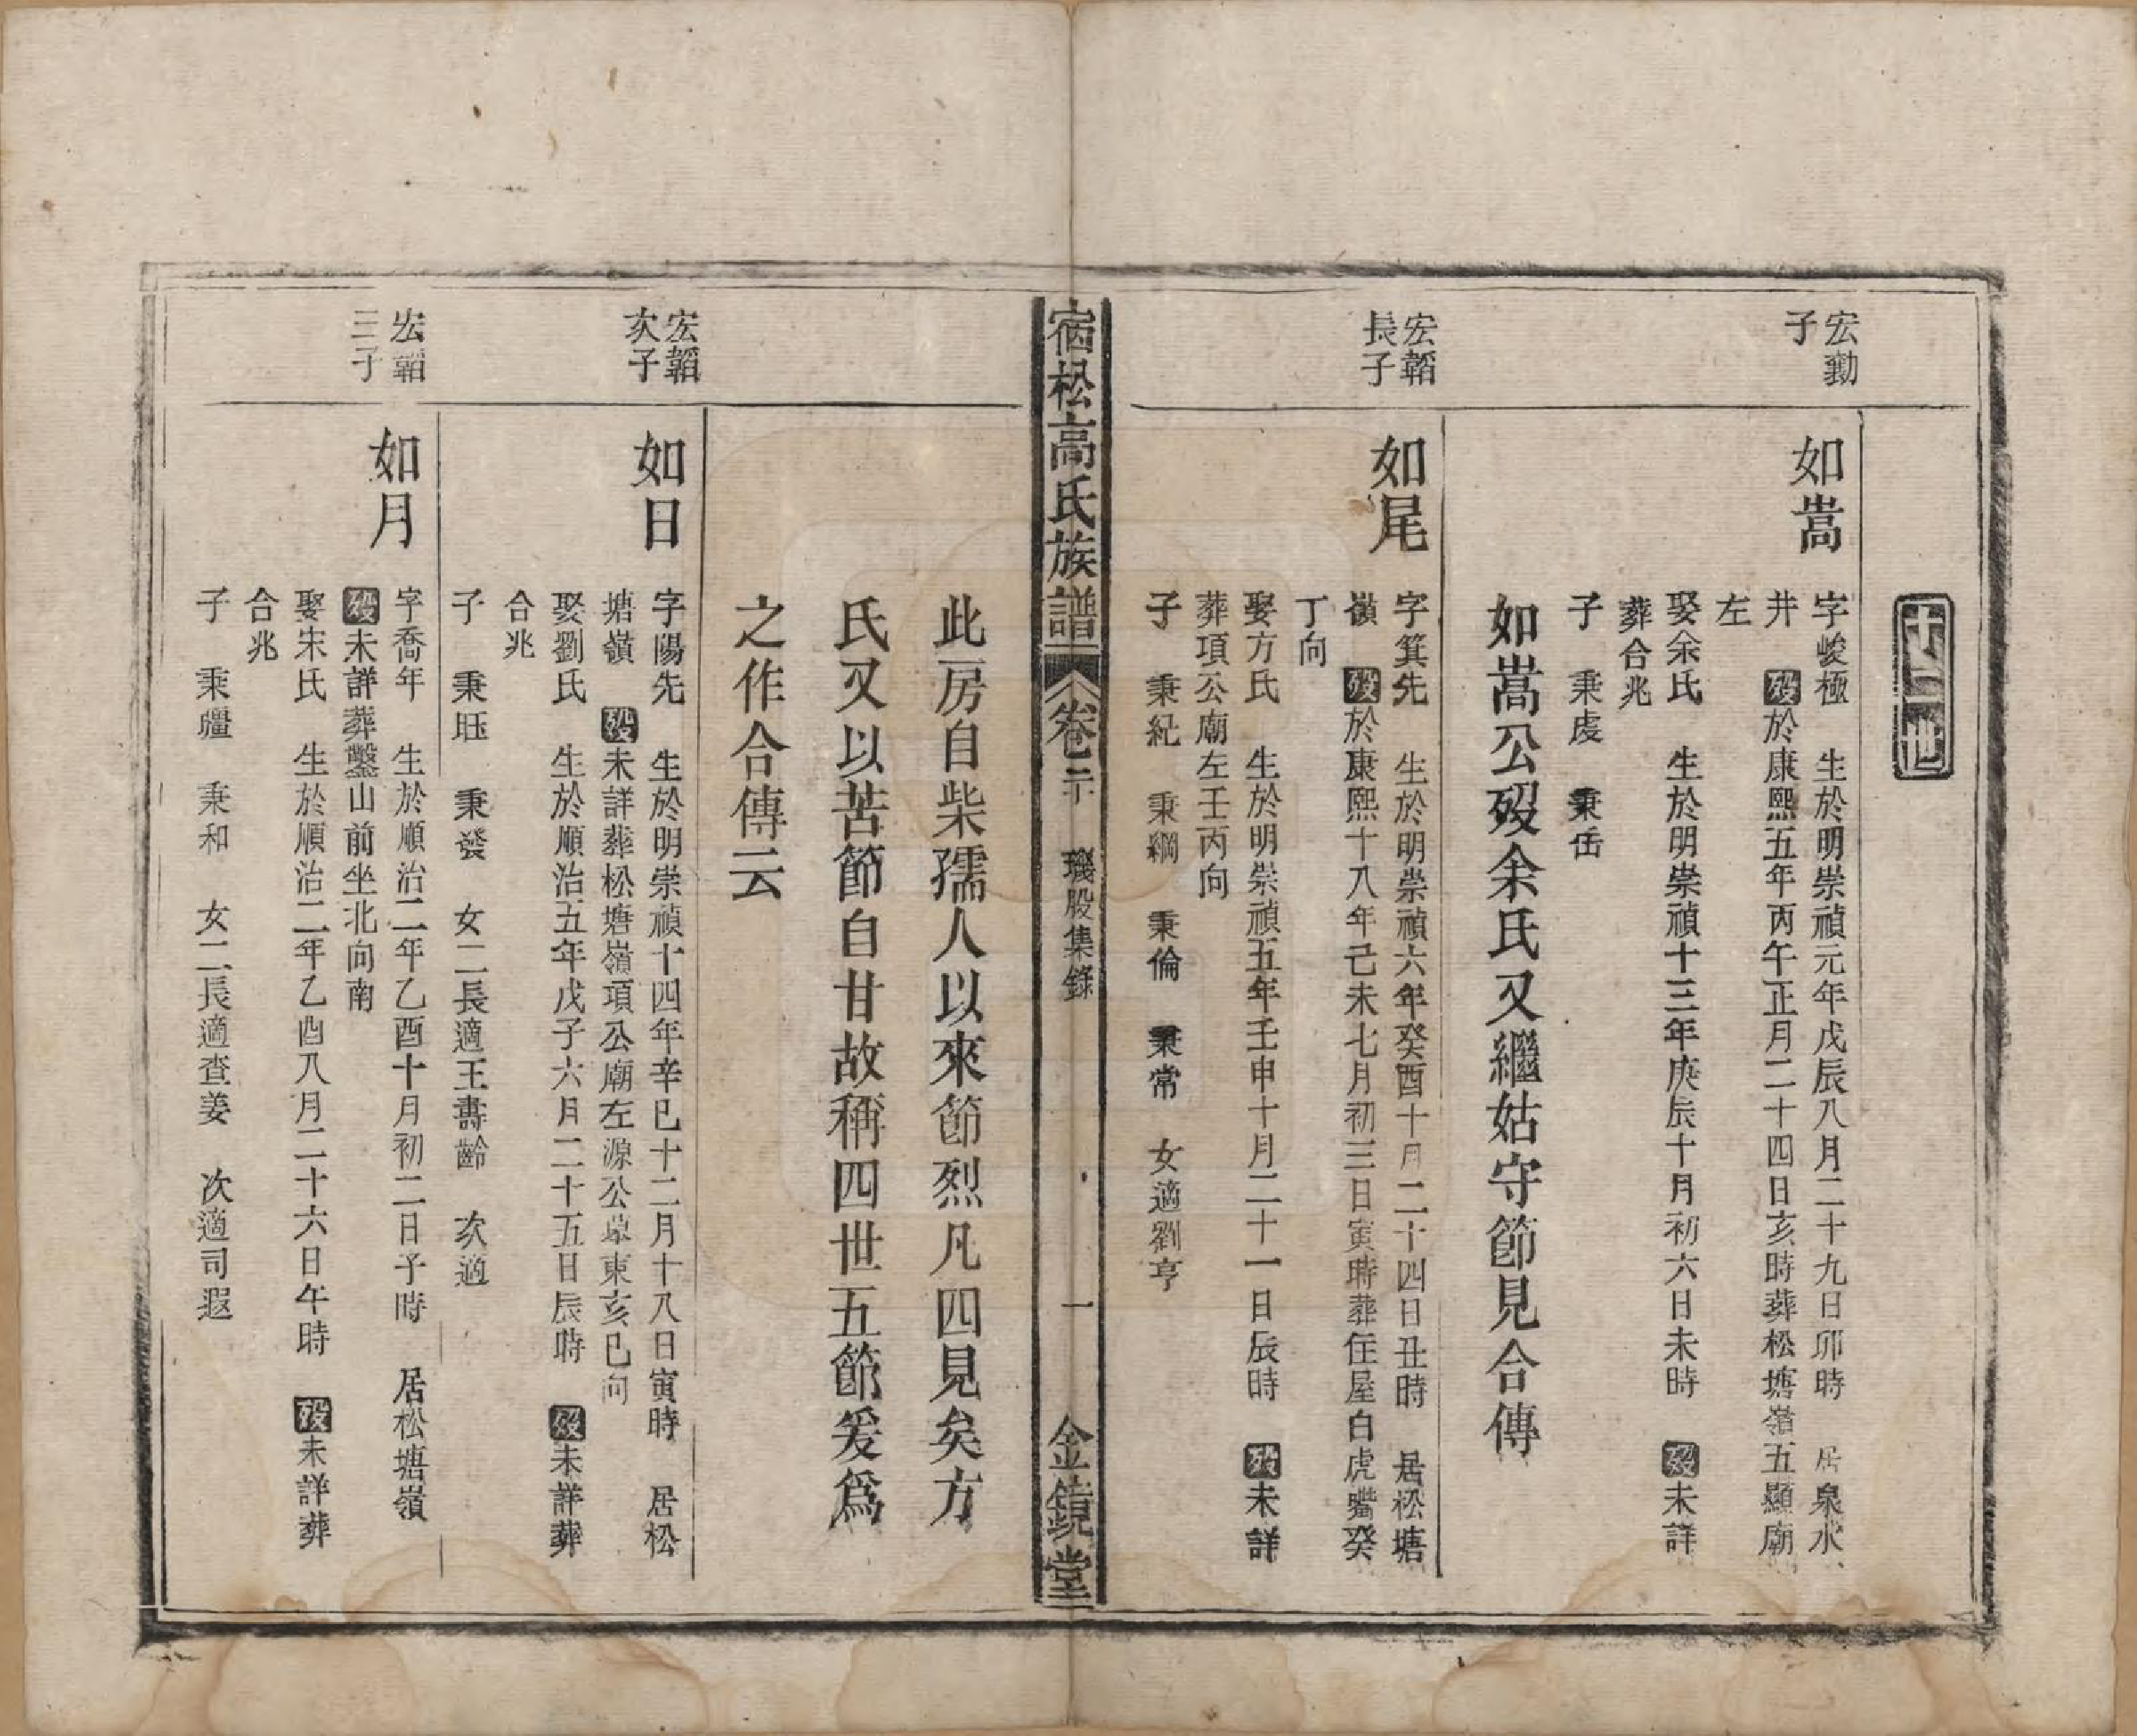 十二世
宏勳
子
如嵩
字峻極　生於明崇禎元年戊辰八月二十九日卯時　居泉水
井　殁於康熙五年丙午正月二十四日亥時葬松塘嶺五顯廟
左
娶余氏　生於明崇禎十三年庚辰十月初六日未時　殁未詳
葬合兆
子　秉虔　秉岳
如嵩公歿余氏又繼姑守節見合傳
宏韜
長子
如尾
字箕先　生於明崇禎六年癸酉十月二十四日丑時　居松塘
嶺　殁於康熙十八年己未七月初三日寅時葬住屋白虎嘴癸
丁向
娶方氏　生於明崇禎五年壬申十月二十一日辰時　殁未詳
葬項公廟左壬丙向
子　秉紀　秉綱　秉倫　秉常　女適劉亨
宿松高氏族譜　卷二十　璣股集錄　一　金鏡堂
此房自柴孺人以來節烈凡四見矣方
氏又以苦節自甘故稱四世五節爰爲
之作合傳云
宏韜
次子
如日
字陽先　生於明崇禎十四年辛巳十二月十八日寅時　居松
塘嶺　殁未詳葬松塘嶺項公廟左源公墓東亥巳向
娶劉氏　生於順治五年戊子六月二十五日辰時　殁未詳葬
合兆
子　秉旺　秉發　女二長適王壽齡　次適
宏韜
三子
如月
字喬年　生於順治二年乙酉十月初二日子時　居松塘嶺
殁未詳葬鑿山前坐北向南
娶宋氏　生於順治二年乙酉八月二十六日午時　殁未詳葬
合兆
子　秉疆　秉和　女二長適查姜　次適司遐